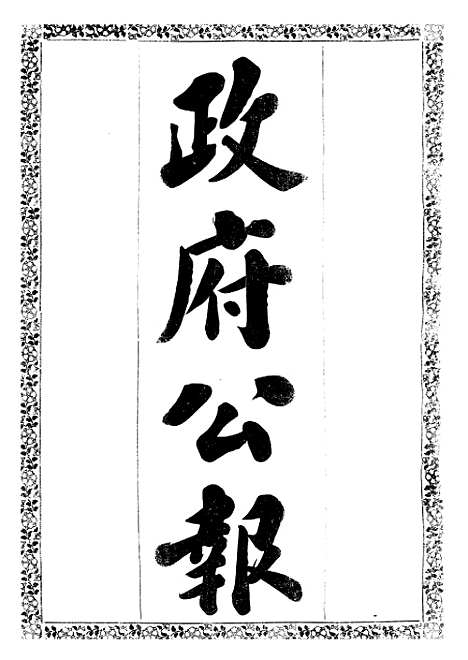 政府公報